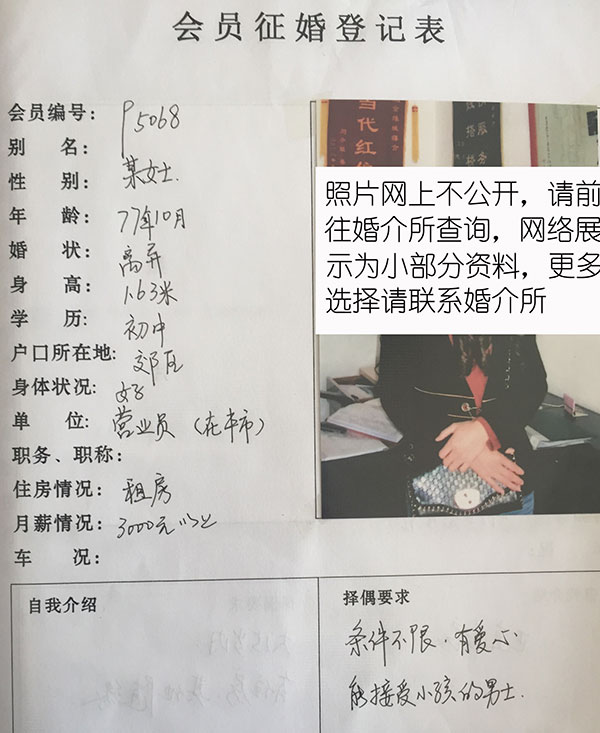 会员征婚登记表
会员编号: P5068
别 名:
性 别: 某女士.
年 龄: 77年10月
婚 状: 离异
身 高: 1.63米
学 历: 初中
户口所在地: 郊区
身体状况: 好
单 位: 营业员（在本市）
职务、职称:
住房情况: 租房
月薪情况: 3000元以上
车 况:
当代红
照片网上不公开，请前
往婚介所查询，网络展
示为小部分资料，更多
选择请联系婚介所
自我介绍
择偶要求
条件不限.有爱心
能接受小孩的男士.